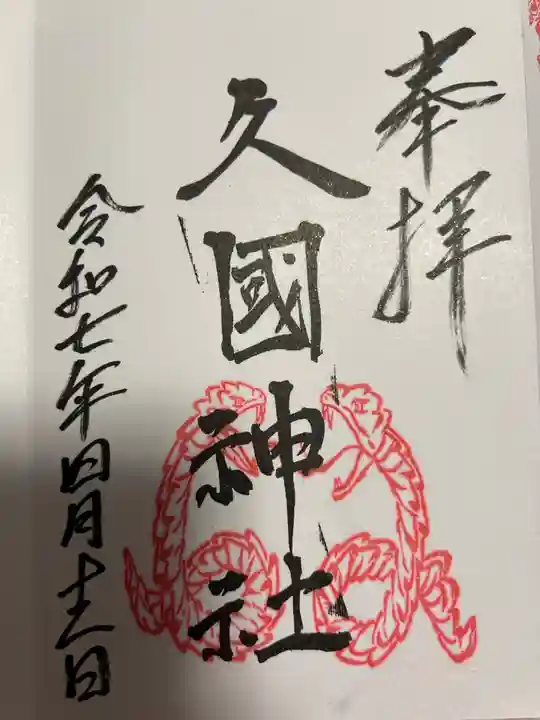 奉拝
久國神社
令和七年四月十二日